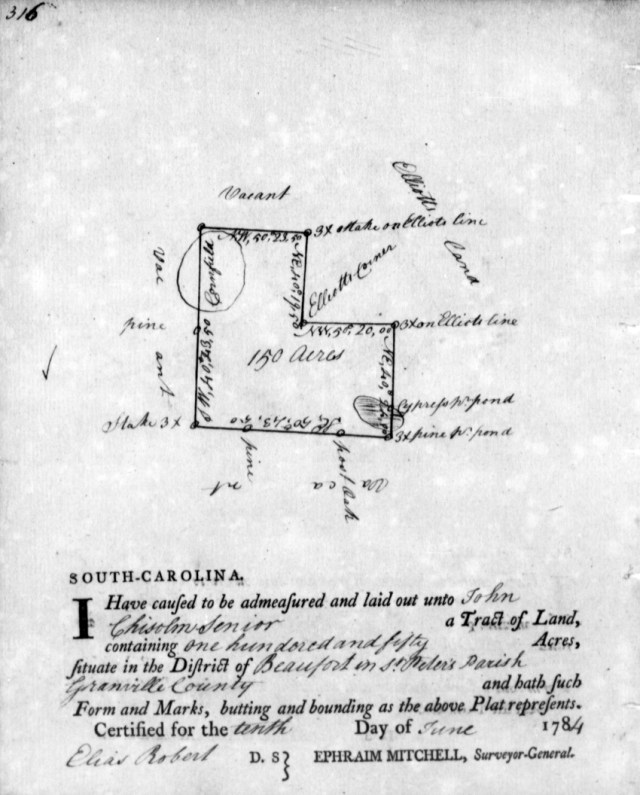 316
Vacant
Elliotts
land
NW, 50°, 23,50
3x Stake on Elliots line
Vac
ant
Cypress
NE, 40°, 19,50
Elliotts Corner
pine
NW, 50, 20,00
3x on Elliots line
150 Acres
Cypress Wr. pond
Stake 3x
3x pine Wr. pond
pine
post Oak
Va ca nt
SOUTH-CAROLINA.
I Have cauſed to be admeaſured and laid out unto John
Chisolm Senior a Tract of Land,
containing one hundored and fifty Acres,
ſituate in the Diſtrict of Beaufort in St. Peter's Parish
Granville County and hath ſuch
Form and Marks, butting and bounding as the above Plat repreſents.
Certified for the tenth Day of June 1784
Elias Robert D. S} EPHRAIM MITCHELL, Surveyor-General.